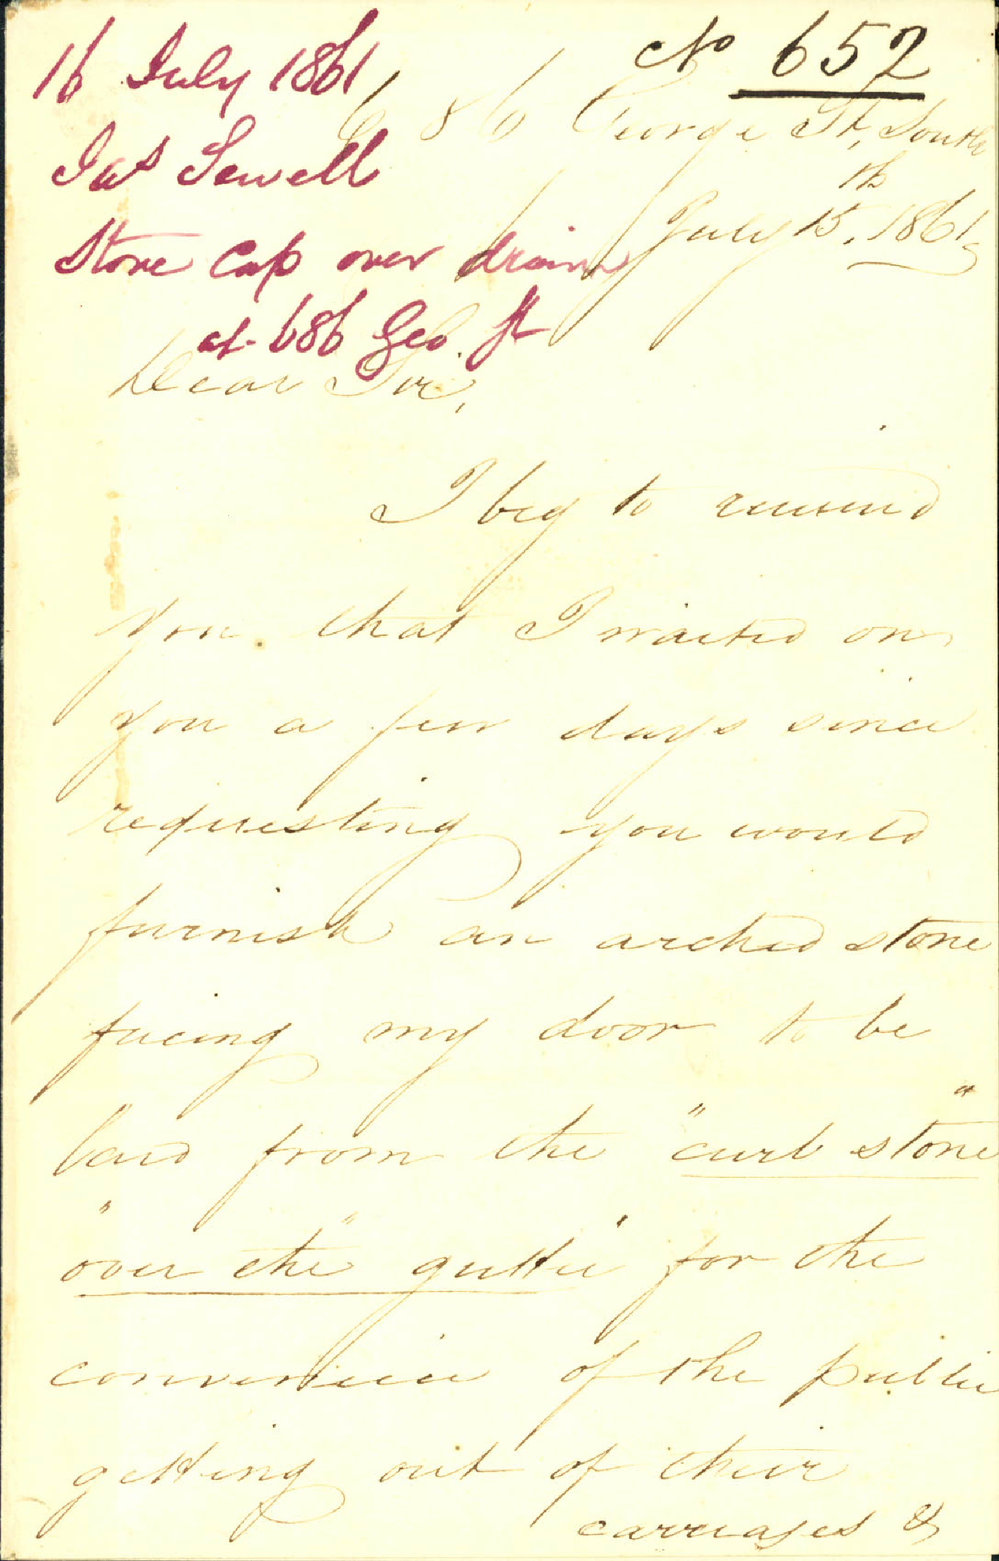 No 652
16 July 1861
Jas Sewell
Stone Cap over drain
at 686 Geo St
686 George St, South
July 15th, 1861
Dear Sir,
I beg to remind
you that I waited on
you a few days since
requesting you would
furnish an arched stone
facing my door to be
laid from the "curb stone"
"over the" gutter" for the
convenience of the public
getting out of their
carriages &